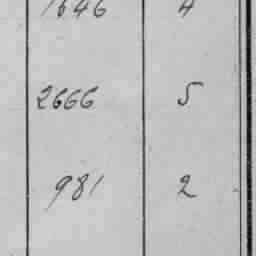 1646 4
2666 5
981 2